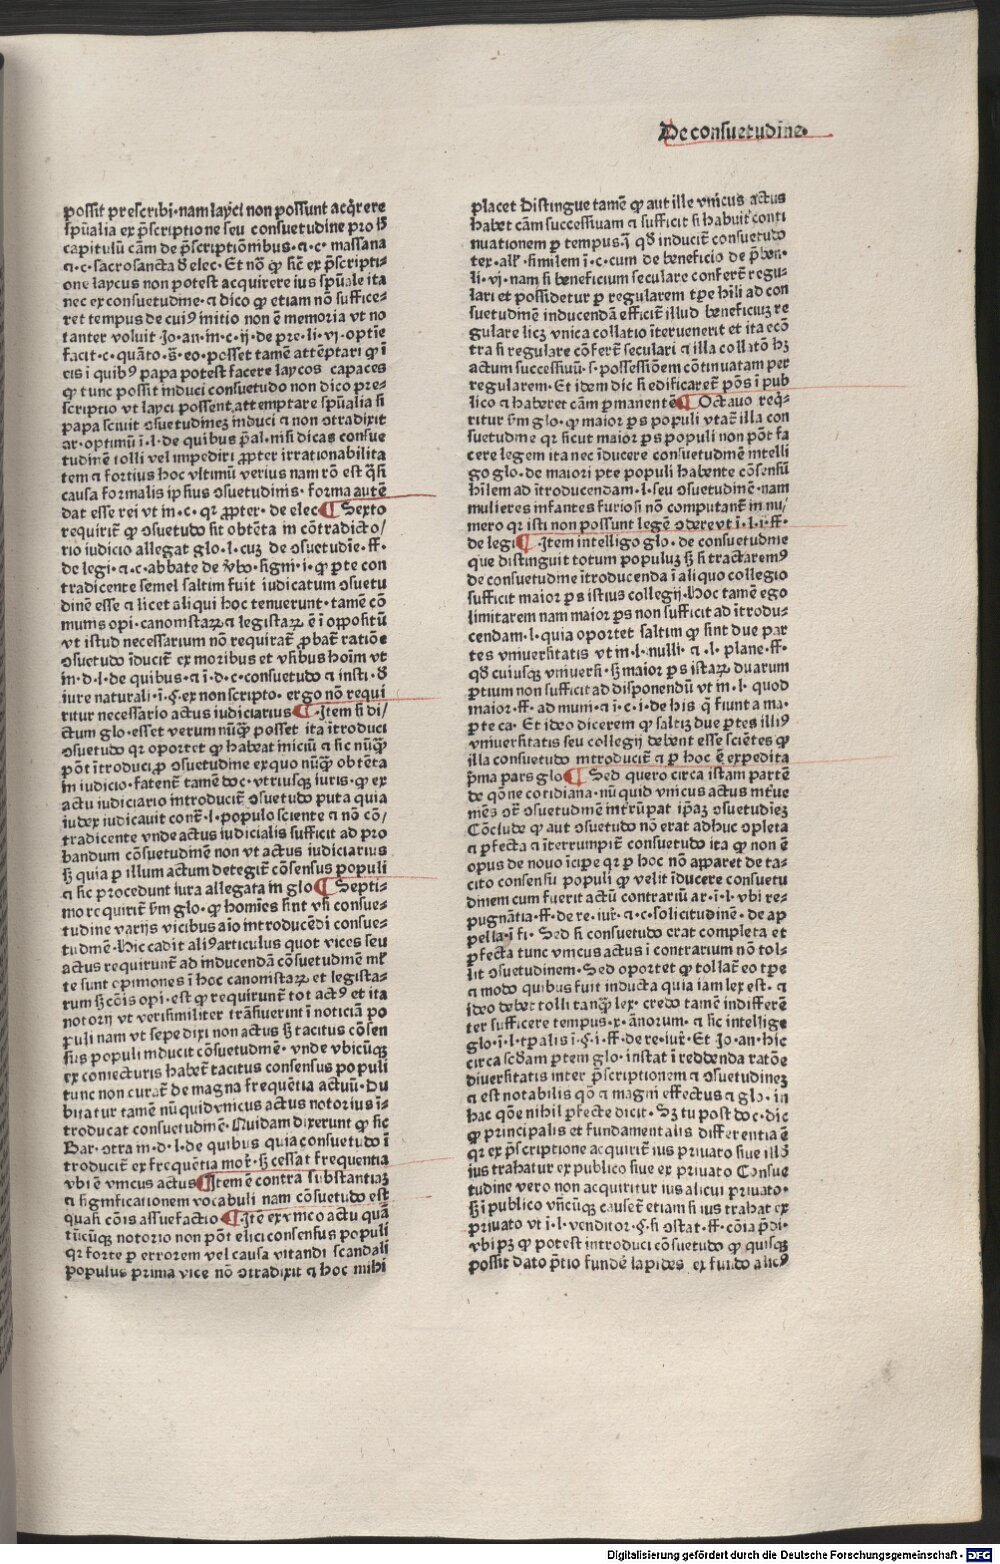 De consuetudine.
possit prescribi·nam layci non possunt acq̄rere
sp̄ualia ex p̄scriptione seu consuetudine pro h̄
capitulū cām de p̄scriptiōnibus·⁊·c·massana
⁊·c·sacrosancta ꝺ elec·Et nō ꝙ sic̄ ex p̄scripti-
one laycus non potest acquirere ius sp̄uale ita
nec ex consuetudine·⁊ dico ꝙ etiam nō suffice-
ret tempus de cuiꝰ initio non ē memoria vt no
tanter voluit·Jo·an·in·c·ij·de pre·li·vj·optīe
facit·c·quāto·s̄·eo·posset tamē attēptari ꝙ ī
cis ī quibꝰ papa potest facere laycos capaces
ꝙ tunc possit induci consuetudo non dico pre-
scriptio vt layci possent attemptare sp̄ualia si
papa sciuit ↄsuetudineꝫ induci ⁊ non ↄtradixit
ar·optimū ī·l·de quibus p̄al·nisi dicas consue
tudinē tolli vel impediri ꝓpter irrationabilita
tem ⁊ fortius hoc vltimū verius nam rō est q̄si
causa formalis ipsius ↄsuetudinis·forma autē
dat esse rei vt in·c·qꝛ ꝓpter·de elec ¶ Sexto
requirit̄ ꝙ ↄsuetudo sit obtēta in cōtradicto/
rio iudicio allegat glo·l·cuꝫ de ↄsuetudīe·ff·
de legi·⁊·c·abbate de v̄bo·signi·ī·ꝙ ꝑte con
tradicente semel saltim fuit iudicatum ↄsuetu
dinē esse ⁊ licet aliqui hoc tenuerunt·tamē cō
munis opi·canonistaꝝ ⁊ legistaꝝ ē ī oppositū
vt istud necessarium nō requirat̄ ꝓbat̄ ratiōe
ↄsuetudo īducit̄ ex moribus et vsibus hoīm vt
in·d·l·de quibus·⁊ ī·d·c·consuetudo ⁊ insti·ꝺ
iure naturali·ī·§·ex non scripto·ergo nō requi
ritur necessario actus iudiciarius ¶·Item si di/
ctum glo·esset verum nūꝙ̄ posset ita ītroduci
ↄsuetudo qꝛ oportet ꝙ habeat iniciū ⁊ sic nūꝙ̄
pōt ītroduci ꝓ ↄsuetudine exquo nūꝙ̄ obtēta
in iudicio·fatent̄ tamē doc·vtriusqꝫ iuris·ꝙ ex
actu iudiciario introducit̄ ↄsuetudo puta quia
iudex iudicauit cont̄·l·populo sciente ⁊ nō cō/
tradicente vnde actus iudicialis sufficit ad pro
bandum cōsuetudinē non vt actus iudiciarius
sꝫ quia ꝑ illum actum detegit̄ cōsensus populi
⁊ sic procedunt iura allegata in glo ¶ Septi-
mo requirit̄ sm̄ glo·ꝙ homīes sint vsi consue-
tudine varijs vicibus aīo introducēdi consue-
tudinē·Hic cadit aliꝰ articulus quot vices seu
actus requirunt̄ ad inducendā cōsuetudinē ml̄
te sunt opiniones ī hoc canonistaꝝ et legista-
rum sꝫ cōis opi·est ꝙ requirunt̄ tot actꝰ et ita
notorij vt verisimiliter trāsiuerint ī noticiā po
puli nam vt sepe dixi non actus sꝫ tacitus cōsen
sus populi inducit cōsuetudinē·vnde vbicūqꝫ
ex coniecturis habet̄ tacitus consensus populi
tunc non curat̄ de magna frequētia actuū·Du
bitatur tamē nūquid vnicus actus notorius ī-
troducat consuetudinē·Quidam dixerunt ꝙ sic
Bar·ↄtra in·d·l·de quibus quia consuetudo ī
troducit̄ ex frequētia mor̄·sꝫ cessat frequentia
vbi ē vnicus actus ¶ Item ē contra substantiaꝫ
⁊ significationem vocabuli nam cōsuetudo est
quasi cōis assuefactio ¶·Itē ex vnico actu quā
tūcūqꝫ notorio non pōt elici consensus populi
qꝛ forte ꝑ errorem vel causa vitandi scandali
populus prima vice nō ↄtradixit ⁊ hoc mihi
placet Distingue tamē ꝙ aut ille vnicus actus
habet cām successiuam ⁊ sufficit si habuit conti
nuationem ꝑ tempus·ī qd̄ inducit̄ consuetudo
tex·alr̄·similem ī·c·cum de beneficio de p̄ben·
li·vj·nam si beneficium seculare confert̄ regu-
lari et possidetur ꝑ regularem tꝑe hīli ad con
suetudinē inducendā efficit̄ illud beneficiuꝫ re
gulare licꝫ vnica collatio īteruenerit et ita ecō
tra si regulare cōfert̄ seculari ⁊ illa collatō hꝫ
actum successiuū·s·possessiōem cōtinuatam per
regularem·Et idem dic si edificaret̄ pōs ī pub
lico ⁊ haberet cām ꝑmanentē ¶ Octauo req̄-
ritur sm̄ glo·ꝙ maior ꝑs populi vtat̄ illa con
suetudine qꝛ sicut maior ꝑs populi non pōt fa
cere legem ita nec īducere consuetudinē intelli
go glo·de maiori ꝑte populi habente cōsensū
hīlem ad ītroducendam·l·seu ↄsuetudinē·nam
mulieres infantes furiosi nō computant̄ in nu/
mero qꝛ isti non possunt legē ↄdere vt ī·l·ī·ff·
de legi ¶·Item intelligo glo·de consuetudine
que distinguit totum populuꝫ sꝫ si tractaremꝰ
de consuetudine ītroducenda ī aliquo collegio
sufficit maior ꝑs istius collegij·Hoc tamē ego
limitarem nam maior ꝑs non sufficit ad ītrodu-
cendam·l·quia oportet saltim ꝙ sint due par
tes vniuersitatis vt in·l·nulli·⁊·l·plane·ff·
qd̄ cuiusqꝫ vniuersi·sꝫ maior ꝑs istaꝝ duarum
ꝑtium non sufficit ad disponendū vt in·l·quod
maior·ff·ad muni·⁊ ī·c·ī·de his q̄ fiunt a ma·
ꝑte ca·Et ideo dicerem ꝙ saltiꝫ due ꝑtes illiꝰ
vniuersitatis seu collegij debent esse sciētes ꝙ
illa consuetudo introducit̄ ⁊ ꝑ hoc ē expedita
p̄ma pars glo ¶ Sed quero circa istam partē
de qōne cotidiana·nū quid vnicus actus int̄ue
niēs ↄt̄ ↄsuetudinē int̄rūpat ip̄aꝫ ↄsuetudīeꝫ
Cōclude ꝙ aut ↄsuetudo nō erat adhuc ↄpleta
⁊ ꝑfecta ⁊ īterrumpit̄ consuetudo ita ꝙ non ē
opus de nouo īcipe qꝛ ꝑ hoc nō apparet de ta-
cito consensu populi ꝙ velit īducere consuetu
dinem cum fuerit actū contrariū ar·ī·l·vbi re-
pugnātia·ff·de re·iur̄·⁊·c·solicitudinē·de ap
pella·ī fi·Sed si consuetudo erat completa et
ꝑfecta tunc vnicus actus ī contrarium nō tol-
lit ↄsuetudinem·Sed oportet ꝙ tollat̄ eo tꝑe
⁊ modo quibus fuit inducta quia iam lex est·⁊
ideo debet tolli tanq̄ lex·credo tamē indifferē
ter sufficere tempus·x·ānorum·⁊ sic intellige
glo·ī·l·tꝑalis ī·§·ī·ff·de re·iur̄·Et Jo·an·hic
circa scd̄am ꝑtem glo·instat ī reddenda ratōe
diuersitatis inter p̄scriptionem ⁊ ↄsuetudineꝫ
⁊ est notabilis qō ⁊ magni effectus ⁊ glo·in
hac qōne nihil ꝑfecte dicit·Sꝫ tu post doc·dic
ꝙ principalis et fundamentalis differentia ē
qꝛ ex p̄scriptione acquirit̄ ius priuato siue illd̄
ius trahatur ex publico siue ex priuato Consue
tudine vero non acquiritur ius alicui priuato·
sꝫ ī publico vn̄cūqꝫ causet̄ etiam si ius trahat̄ ex
priuato vt ī·l·venditor·§·si ↄstat·ff·cōia p̄di·
vbi pꝫ ꝙ potest introduci cōsuetudo ꝙ quisqꝫ
possit dato p̄tio fundē lapides ex fundo alicꝰ
Digitalisierung gefördert durch die Deutsche Forschungsgemeinschaft - DFG